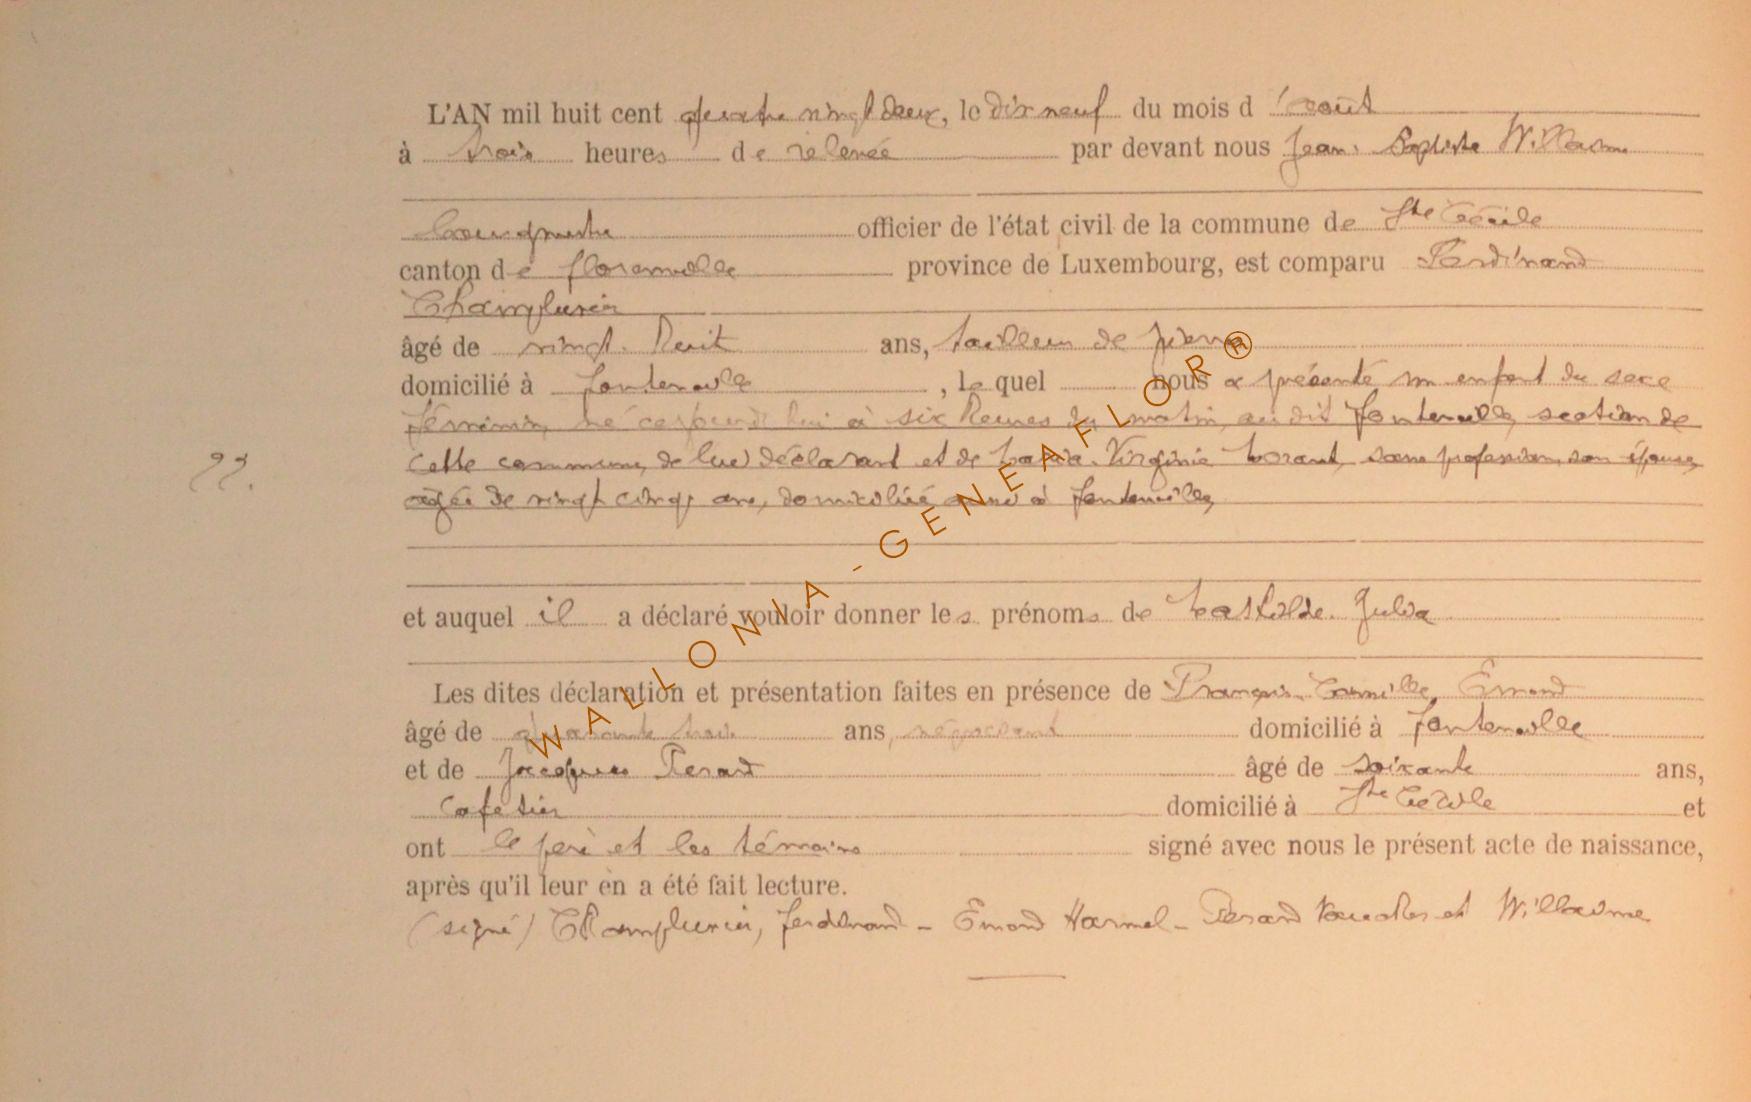 L'AN mil huit cent quatre vingt deux, le dix neuf du mois d'août
à trois heures de relevée par devant nous Jean-Baptiste Willaume
bourgmestre officier de l'état civil de la commune de Ste Cécile
canton de Florenville province de Luxembourg, est comparu Ferdinand
Champlurin
âgé de vingt-huit ans, tailleur de pierre
domicilié à Fontenoille, lequel nous a présenté un enfant du sexe
féminin, né à six heures du matin, au dit Fontenoille, section de
22.
cette commune, de lui déclarant et de Virginie sans profession, son épouse,
agée de vingt cinq ans, domiciliée à Fontenoille,
et auquel il a déclaré vouloir donner les prénoms de Julia
Les dites déclaration et présentation faites en présence de François-Camille Emond
âgé de quarante trois ans, négociant domicilié à Fontenoille
et de Jacques Perard âgé de soixante ans,
cafetier domicilié à Ste Cécile et
ont le père et les témoins signé avec nous le présent acte de naissance,
après qu'il leur en a été fait lecture.
(signé) Champlurin, Ferdinand - Emond Harmel - Perard et Willaume
WALLONIA-GENEAFLOR®